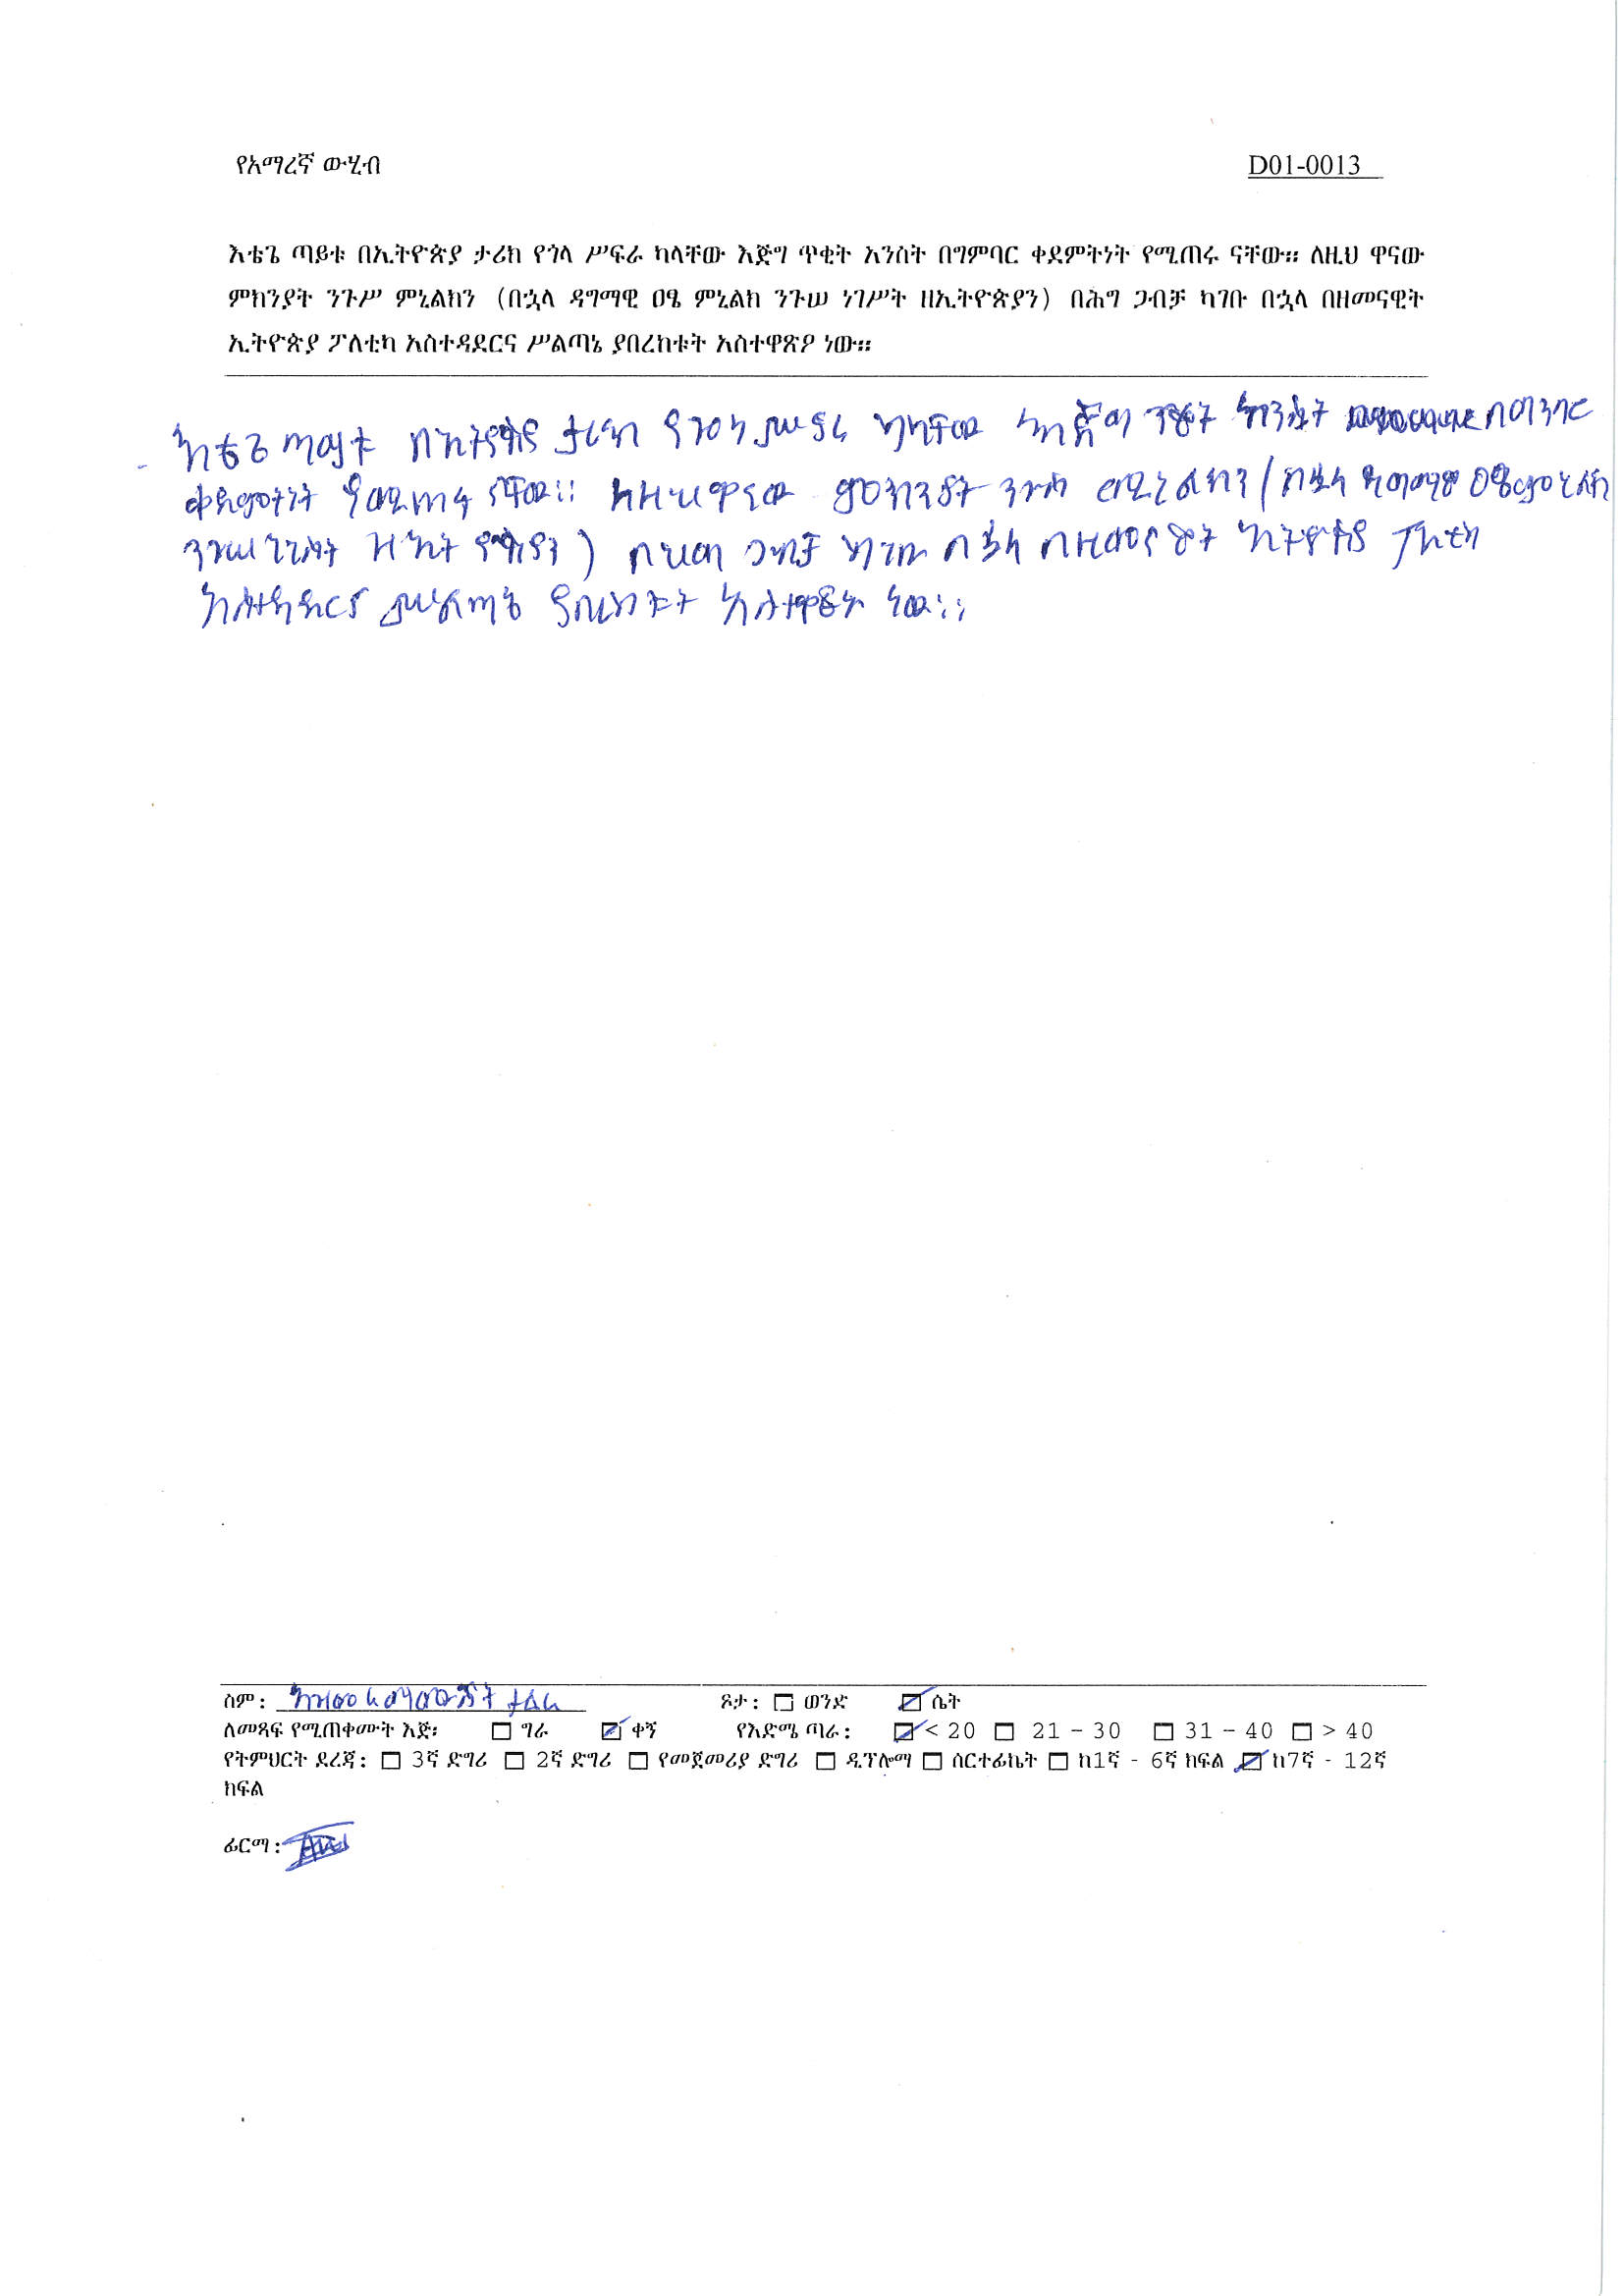 የአማረኛ ውሂብ D01-0013
እቴጌ ጣይቱ በኢትዮጵያ ታሪክ የጎላ ሥፍራ ካላቸው እጅግ ጥቂት አንስት በግምባር ቀደምትነት የሚጠሩ ናቸው። ለዚህ ዋናው
ምክንያት ንጉሥ ምኒልክን (በኋላ ዳግማዊ ዐፄ ምኒልክ ንጉሠ ነገሥት ዘኢትዮጵያን) በሕግ ጋብቻ ካገቡ በኋላ በዘመናዊት
ኢትዮጵያ ፖለቲካ አስተዳደርና ሥልጣኔ ያበረከቱት አስተዋጽዖ ነው።
እቴጌ ጣይቱ በኢትዮጵያ ታሪክ የጎላ ሥፍራ ካላቸው እጅግ ጥቂት አንስት በግንባር
ቀደምትነት የሚጠሩ ናቸው። ለዚህ ዋናው ምክንያት ንጉስ ሚኒልክን / በኋላ ዳግማዊ ዐፄ ምኒልክ
ንጉሠ ነገስት ዘኢትዮጵያን ) በህግ ጋብቻ ካገቡ በኋላ በዘመናዊት ኢትዮጵያ ፖለቲካ
አስተዳደርና ሥልጣኔ ያበረከቱት አስተዋፅኦ ነው።
ስም: ጾታ: ወንድ ሴት
ለመጻፍ የሚጠቀሙት እጅ፡ ግራ ቀኝ የእድሜ ጣራ: < 20 21 – 30 31 – 40 > 40
የትምህርት ደረጃ: 3ኛ ድግሪ 2ኛ ድግሪ የመጀመሪያ ድግሪ ዲፕሎማ ሰርተፊኬት ከ1ኛ - 6ኛ ክፍል ከ7ኛ - 12ኛ
ክፍል
ፊርማ: